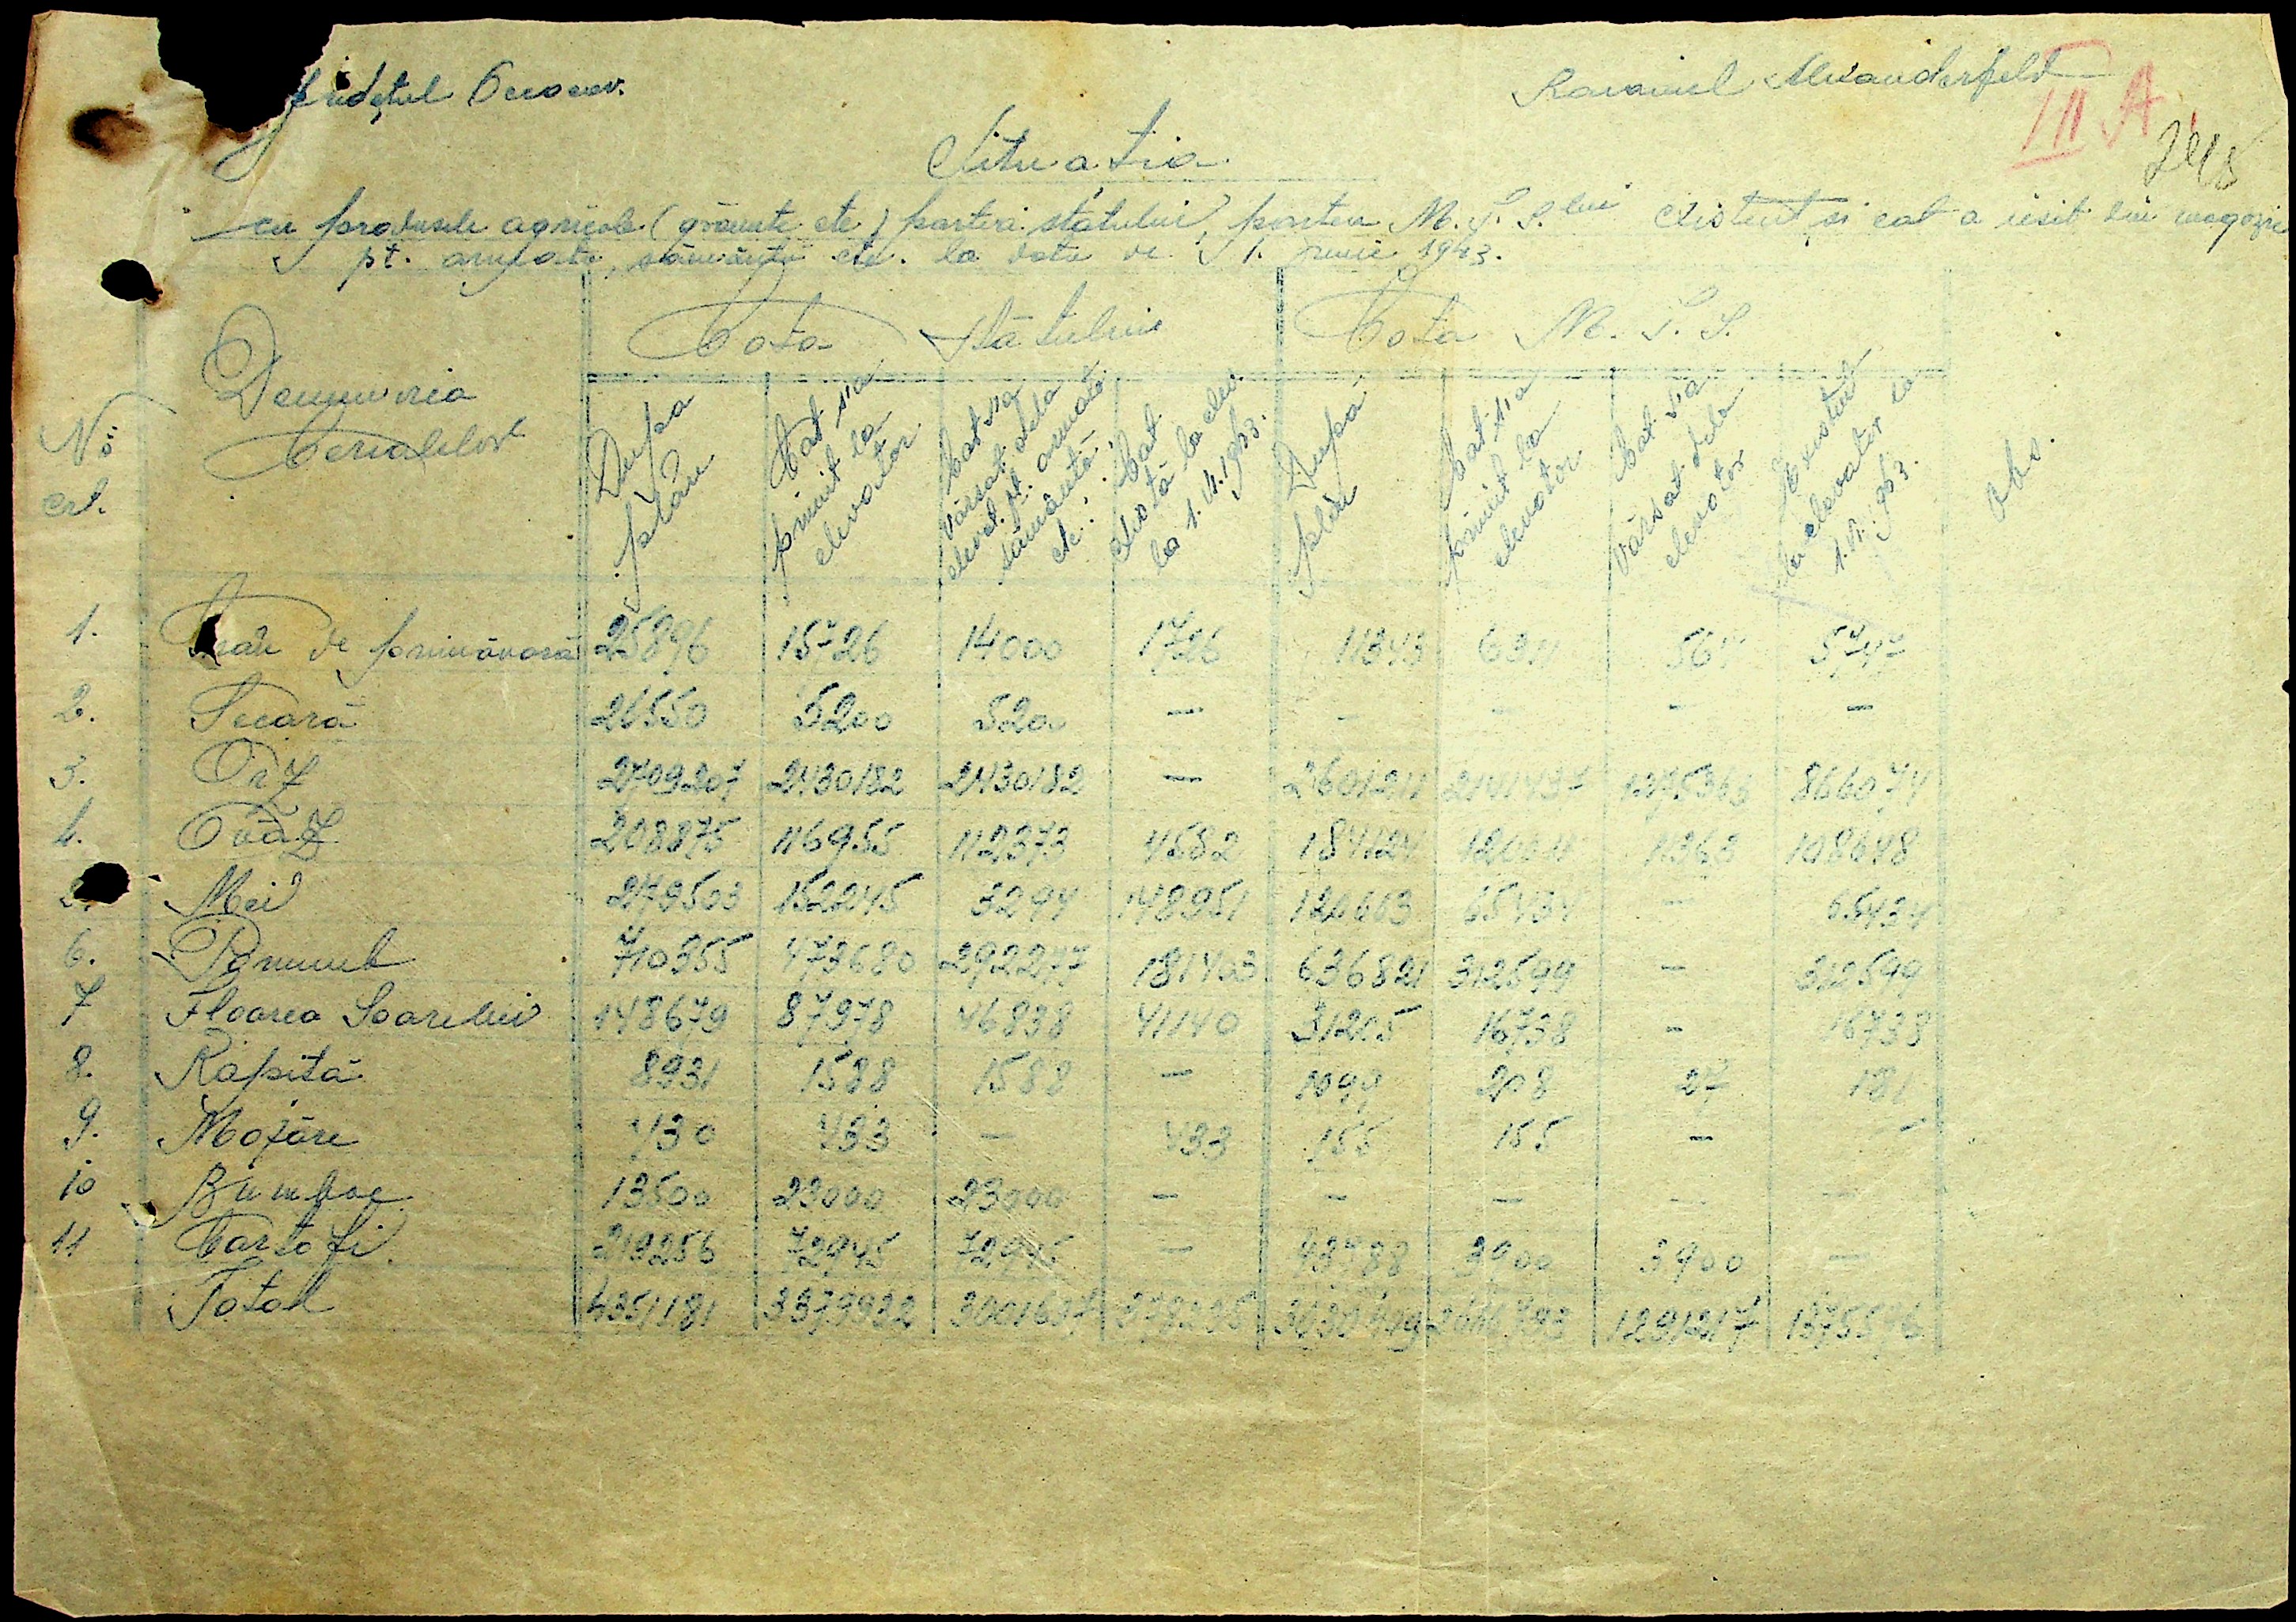 Județul
Raionul Alexanderfeld
III A
248
Situația
cu produsele agricole (grăunte etc) partea statului, partea M.S.S.lui existent și cat a iesit din magazie
pt. armată, sămânță etc. la data de 1. Junie 1943.
No. crt. Denumirea Cerealelor Cota Statului Cota M.S.S. Obs.
Dupa plan Cat s'a primit la elevator Cat s'a vărsat dela elevat. pt. armată sămânță etc. Cat există la elev. la 1.VI.1943. Dupa plan Cat s'a primit la elevator Cat s'a vărsat dela elevator Existent la elevator la 1.VI.943.
1. Grâu de primăvară 25896 15726 14000 1726 11343 6311 564 5747
2. Secară 26550 5200 5200 — — — — —
3. Orz 2709207 2430182 2430182 — 2601211 2141437 1275363 866074
4. Ovăz 208875 116955 112373 4582 184124 11363 108648
5. Mei 279503 152245 3294 148951 120663 65434 — 65434
6. Porumb 710355 473680 292277 181403 636821 312599 — 312599
7 Floarea Soarelui 148679 87978 46838 41140 31205 16738 - 16738
8. Rapiță 8931 1588 1588 — 1099 208 27 181
9. Mazăre 430 433 — 433 155 155 — —
10 Bumbac 13500 23000 23000 — — — — —
11 Cartofi 219256 72945 72945 — 43788 3900 3900 —
Total 4351181 3379932 3001697 378235 1291217 1375576